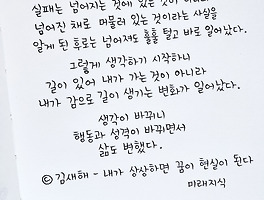 실패는 넘어지는 것에 있는 것이 아니라
넘어진 채로 머물러 있는 것이라는 사실을
알게 된 후로는 넘어져도 훌훌 털고 바로 일어났다.
그렇게 생각하기 시작하니
길이 있어 내가 가는 것이 아니라
내가 감으로 길이 생기는 변화가 일어났다.
생각이 바뀌니
행동과 성격이 바뀌면서
삶도 변했다.
ⓒ 김새해 - 내가 상상하면 꿈이 현실이 된다
미래지식